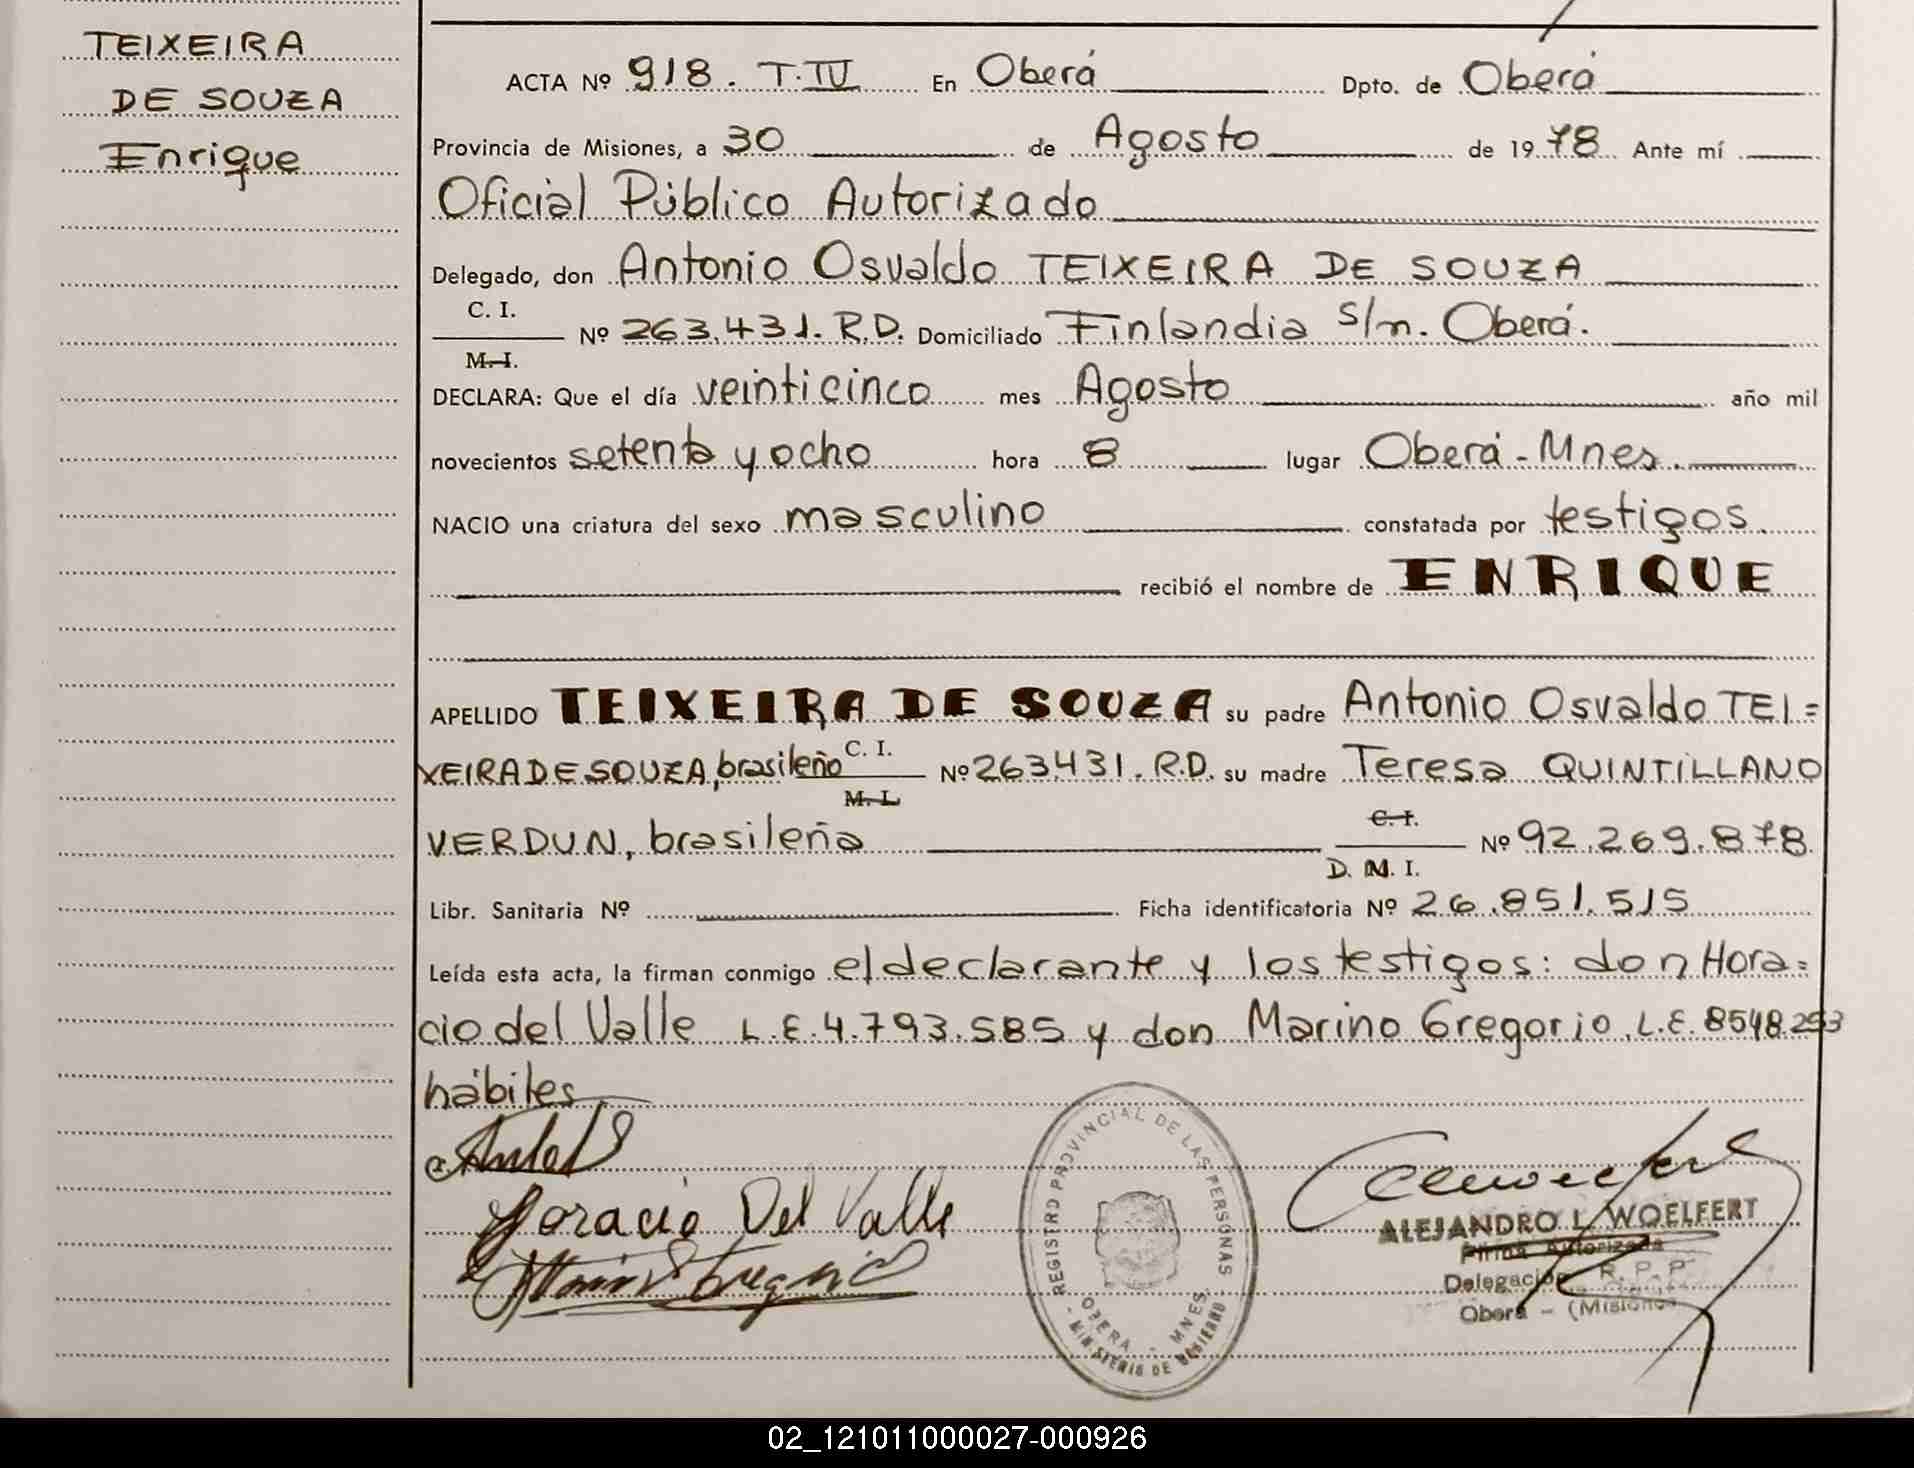 TEIXEIRA
DE SOUZA
Enrique
ACTA Nº 918. T. IV En Oberá Dpto. de Oberá
Provincia de Misiones, a 30 de Agosto de 1978 Ante mí
Oficial Público Autorizado
Delegado, don Antonio Osvaldo TEIXEIRA DE SOUZA
C. I.
M. I.
Nº 263.431. R.D. Domiciliado Finlandia s/n. Oberá.
DECLARA: Que el día veinticinco mes Agosto año mil
novecientos setenta y ocho hora 8 lugar Oberá - Mnes.
NACIO una criatura del sexo masculino constatada por testigos.
recibió el nombre de ENRIQUE
APELLIDO TEIXEIRA DE SOUZA su padre Antonio Osvaldo TEI=
XEIRA DE SOUZA, brasileño C. I. Nº 263431. R.D. su madre Teresa QUINTILLANO
M. I.
VERDUN, brasileña C. I. Nº 92.269.878
D. M. I.
Libr. Sanitaria Nº Ficha identificatoria Nº 26.851.515
Leída esta acta, la firman conmigo el declarante y los testigos: don Hora=
cio del Valle L.E. 4.793.585 y don Marino Gregorio. L.E. 8548.253
hábiles
Horacio Del Valle
REGISTRO PROVINCIAL DE LAS PERSONAS
OBERA - MNES.
- MINISTERIO DE GOBIERNO -
ALEJANDRO L. WOELFERT
Firma Autorizada
Delegación R. P. P.
Oberá - (Misiones
02_121011000027-000926